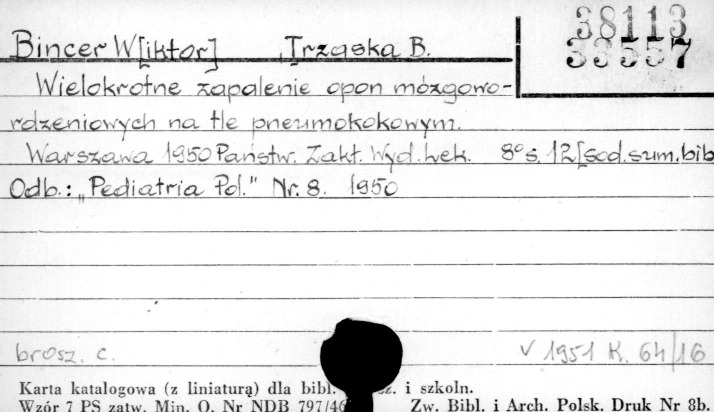 38113
33557
Bincer W[iktor] , Trząska B.
Wielokrotne zapalenie opon mózgowo-
rdzeniowych na tle pneumokokowym.
Warszawa 1950 Państw. Zakł. Wyd. Lek. 8° s. 12 [sod. sum. bib
Odb.: „Pediatria Pol." Nr. 8. 1950
brosz. c. V 1951 K. 64/16
Karta katalogowa (z liniaturą) dla bibl. i szkoln.
Wzór 7 PS zatw. Min. O. Nr NDB 797/46 Zw. Bibl. i Arch. Polsk. Druk Nr 8b.